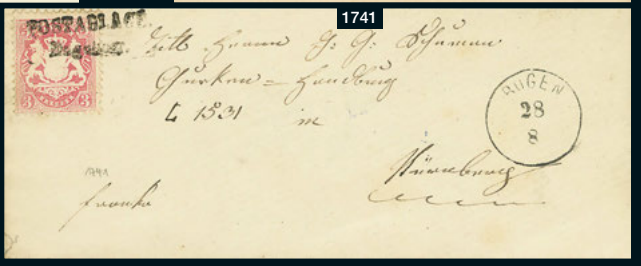 1741
POSTABLAGE
3 3
Herrn J. G.
Gurken = Handlung
L 1531 in
RUGEN
28
8
Nürnberg
1741
franko